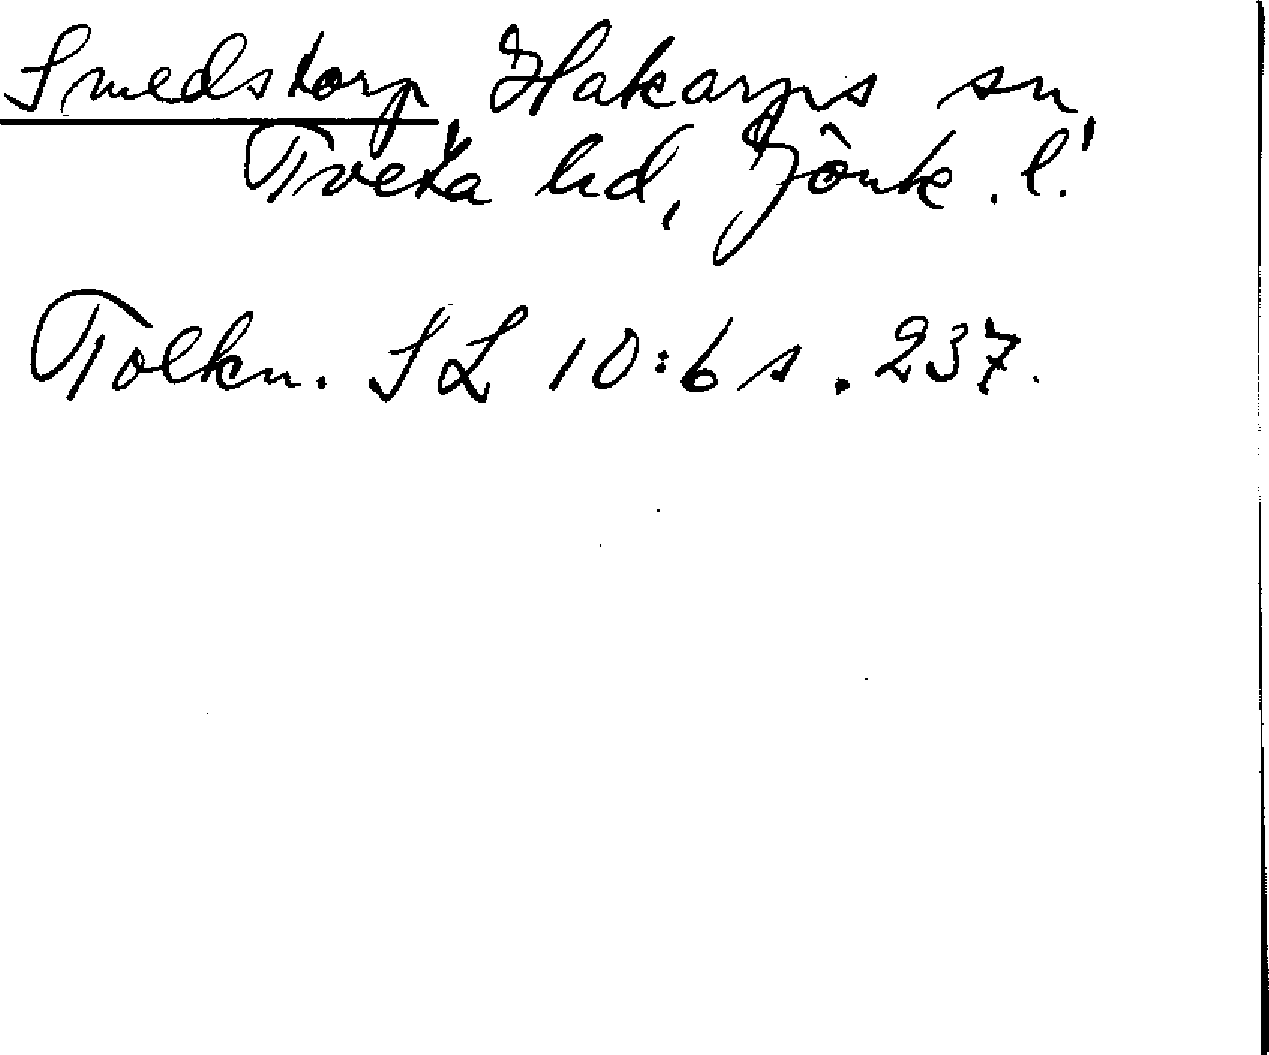 Smedstorp, Hakarps sn,
Tveta hd, Jönk. l.
Tolkn. SL 10:6 s. 237.